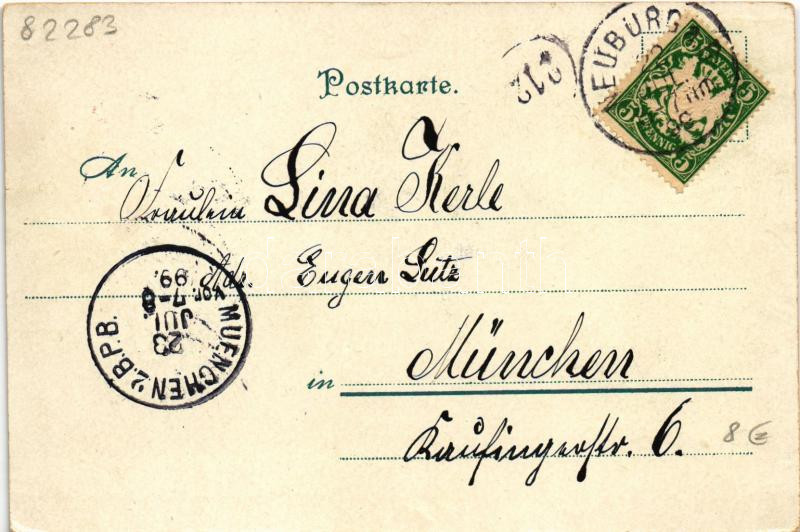 82283
Postkarte.
212
NEUBURG
BAYERN
5 5
PFENNIG
5 5
An Fräulein Lina Kerle
Adr. Eugen Lutz
in München
Kaufingerstr. 6.
8 €
MUENCHEN 2.B.P.B.
23
JUL.
7-8
Vor. 99.